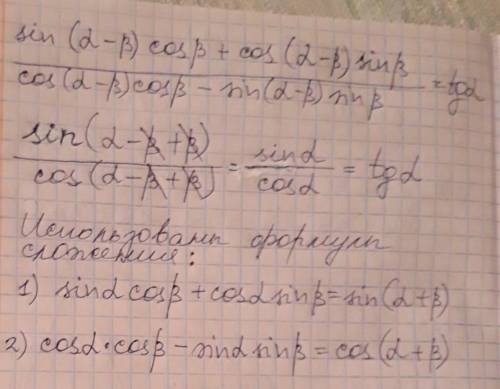 sin (α-β) cosβ + cos (α-β) sinβ
cos(α-β)cosβ - sin(α-β) sinβ
= tgα
sin(α-β+β)
cos(α-β+β)
= sinα
cosα
= tgα
Использованы формулы
сложения:
1) sinα cosβ + cosα sinβ = sin(α+β)
2) cosα · cosβ - sinα sinβ = cos(α+β)